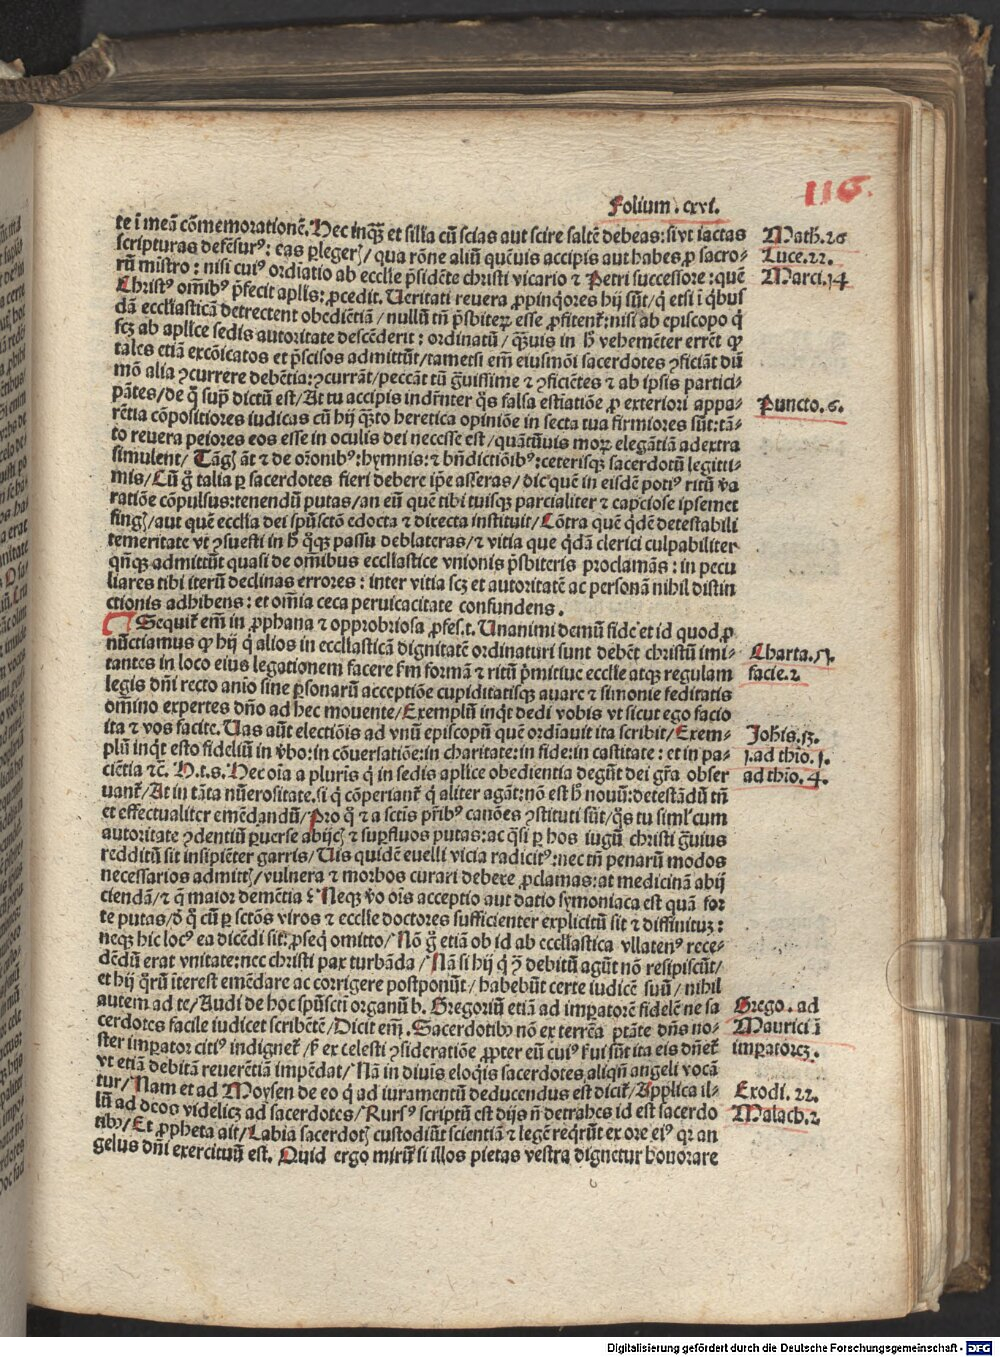 116.
Folium. cxvi.
te ī meā cōmemorationē. Hec inqꝫ et silia cū scias aut scire saltē debeas: si vt iactas
Math. 26
scripturas defēsurꝰ: eas plegerꝭ/ qua rōne aliū quēuis accipis aut habes ꝓ sacro-
Luce. 22.
rū mīstro: nisi cuiꝰ ordīatio ab ecclie p̄sidēte christi vicario ⁊ Petri successore: quē
Marci. 14
Christꝰ oīmbꝰ p̄fecit aplis: ꝓcedit. Ueritati reuera ꝓpinqores hij sūt/ q̇ etsi ī qbus
dā eccl'iasticā detrectent obediētiā/ nullū tn̄ p̄sbiteꝝ esse ꝓfitentᷣ: nisi ab episcopo q̇
scꝫ ab aplice sedis autoritate descēderit: ordinatū/ qꝫuis in h̄ vehemēter errēt qꝫ
tales etiā excōicatos et p̄scisos admittūt/ tametsi em̄ eiusmōi sacerdotes ꝯficiāt dū
mō alia ꝯcurrere debētia: ꝯcurrāt/ peccāt tn̄ g̈uissime ⁊ ꝯficiētes ⁊ ab ipsis partici-
pātes/ de q̇ sup̄ dictū est/ At tu accipis indr̄nter q̄s falsa estīatiōe ꝓ exteriori appa-
Puncto. 6.
rētia cōpositiores iudicas cū hij qꝫto heretica opiniōe in secta tua firmiores sūt: tā-
to reuera peiores eos esse in oculis dei necesse est/ quātūuis moꝝ elegātiā ad extra
simulent/ Tāgꝭ āt ⁊ de orōnibꝰ: hymnis: ⁊ bn̄dictiōibꝰ: ceterisqꝫ sacerdotū legitti-
mis/ Cū g̊ talia p sacerdotes fieri debere ipe asseras/ dic quē in eisdē potiꝰ ritū va
ratiōe cōpulsus: tenendū putas/ an eū quē tibi tuisqꝫ parcialiter ⁊ capciose ipsemet
fingꝭ/ aut quē ecclia dei spūsctō edocta ⁊ directa instituit/ Cōtra quē q̇dē detestabili
temeritate vt ꝯsuesti in h̄ q̊qꝫ passu deblateras/ ⁊ vitia que q̇dā clerici culpabiliter
qn̄qꝫ admittūt quasi de omībus eccl'iastice vnionis p̄sbiteris proclamās: in pecu
liares tibi iterū declinas errores: inter vitia scꝫ et autoritatē ac personā nihil distin
ctionis adhibens: et om̄ia ceca peruicacitate confundens.
Sequitᷣ em̄ in ꝓphana ⁊ opprobriosa ꝓfes. t. Unanimi demū fide et id quod ꝓ
nūctiamus qꝫ hij q̇ alios in eccl'iasticā dignitatē ordinaturi sunt debēt christū imi-
Charta. 51.
tantes in loco eius legationem facere s̄m formā ⁊ ritū p̄mitiue ecclie atqꝫ regulam
facie. 2
legis dn̄i recto anīo sine ꝑsonarū acceptiōe cupiditatisqꝫ auare ⁊ simonie feditatis
om̄ino expertes dn̄o ad hec mouente/ Exemplū inq̇t dedi vobis vt sicut ego facio
ita ⁊ vos facite. Uas aūt electiōis ad vnū episcopū quē ordīauit ita scribit/ Exem-
Johis. 13.
plū inq̇t esto fideliū in ꝟbo: in cōuersatiōe: in charitate: in fide: in castitate: et in pa-
1. ad thīo. 1.
ciētia ⁊c̄. H. t. s. Hec oīa a pluris q̇ in sedis aplice obedientia degūt dei gr̄a obser
ad thīo. 4.
uantᷣ/ At in tāta nūerositate. si q̇ cōperiantᷣ q̇ aliter agāt: nō est h̄ nouū: detestādū tn̄
et effectualiter emēdandū/ Pro q̇ ⁊ a sctis pr̄ibꝰ canōes ꝯstituti sūt/ q̇s tu siml' cum
autoritate ꝯdentiū ꝑuerse abijcꝭ ⁊ supfluos putas: ac q̇si p hos iugū christi g̈uius
redditū sit insipiēter garris/ Uis quidē euelli vicia radicitꝰ: nec tn̄ penarū modos
necessarios admittꝭ/ vulnera ⁊ morbos curari debere ꝓclamas: at medicinā abij
ciendā/ ⁊ q̄ maior demētia? Neqꝫ ꝟo oīs acceptio aut datio symoniaca est quā for
te putas/ d̄ q̇ cū p sctōs viros ⁊ ecclie doctores sufficienter explicitū sit ⁊ diffinitū:
neqꝫ hic locꝰ ea dicēdi sit: ꝓseq̇ omitto/ Nō g̊ etiā ob id ab eccl'iastica vllatenꝰ rece-
dēdū erat vnitate: nec christi pax turbāda/ Nā si hij q̇ ꝯ debitū agūt nō resipiscūt/
et hij q̊rū īterest emēdare ac corrigere postponūt/ habebūt certe iudicē suū/ nihil
autem ad te/ Audi de hoc spūscti organū b. Gregoriū etiā ad impatorē fidelē ne sa
Grego. ad
cerdotes facile iudicet scribētē/ Dicit em̄. Sacerdotibꝰ nō ex terrēa ptāte dn̄s no-
Maurici ū
ster impator citiꝰ indignetᷣ/ s̄ ex celesti ꝯsideratiōe ꝓpter eū cuiꝰ s̄ui sūt ita eis dn̄etᷣ
impatorē.
vt etiā debitā reuerētiā impēdat/ Nā in diuīs eloq̇is sacerdotes aliqn̄ angeli vocā
tur/ Nam et ad Moysen de eo q̇ ad iuramentū deducendus est dicitᷣ/ Applica il-
Exodi. 22.
lū ad deos videlicꝫ ad sacerdotes/ Rursꝰ scriptū est dijs n̄ detrahes id est sacerdo
Malach. 2
tibꝰ/ Et ꝓpheta ait/ Labia sacerdotꝭ custodiūt scientiā ⁊ legē reqrūt ex ore eiꝰ qꝛ an
gelus dn̄i exercituū est. Quid ergo mirū si illos pietas vestra dignetur honorare
Digitalisierung gefördert durch die Deutsche Forschungsgemeinschaft - DFG